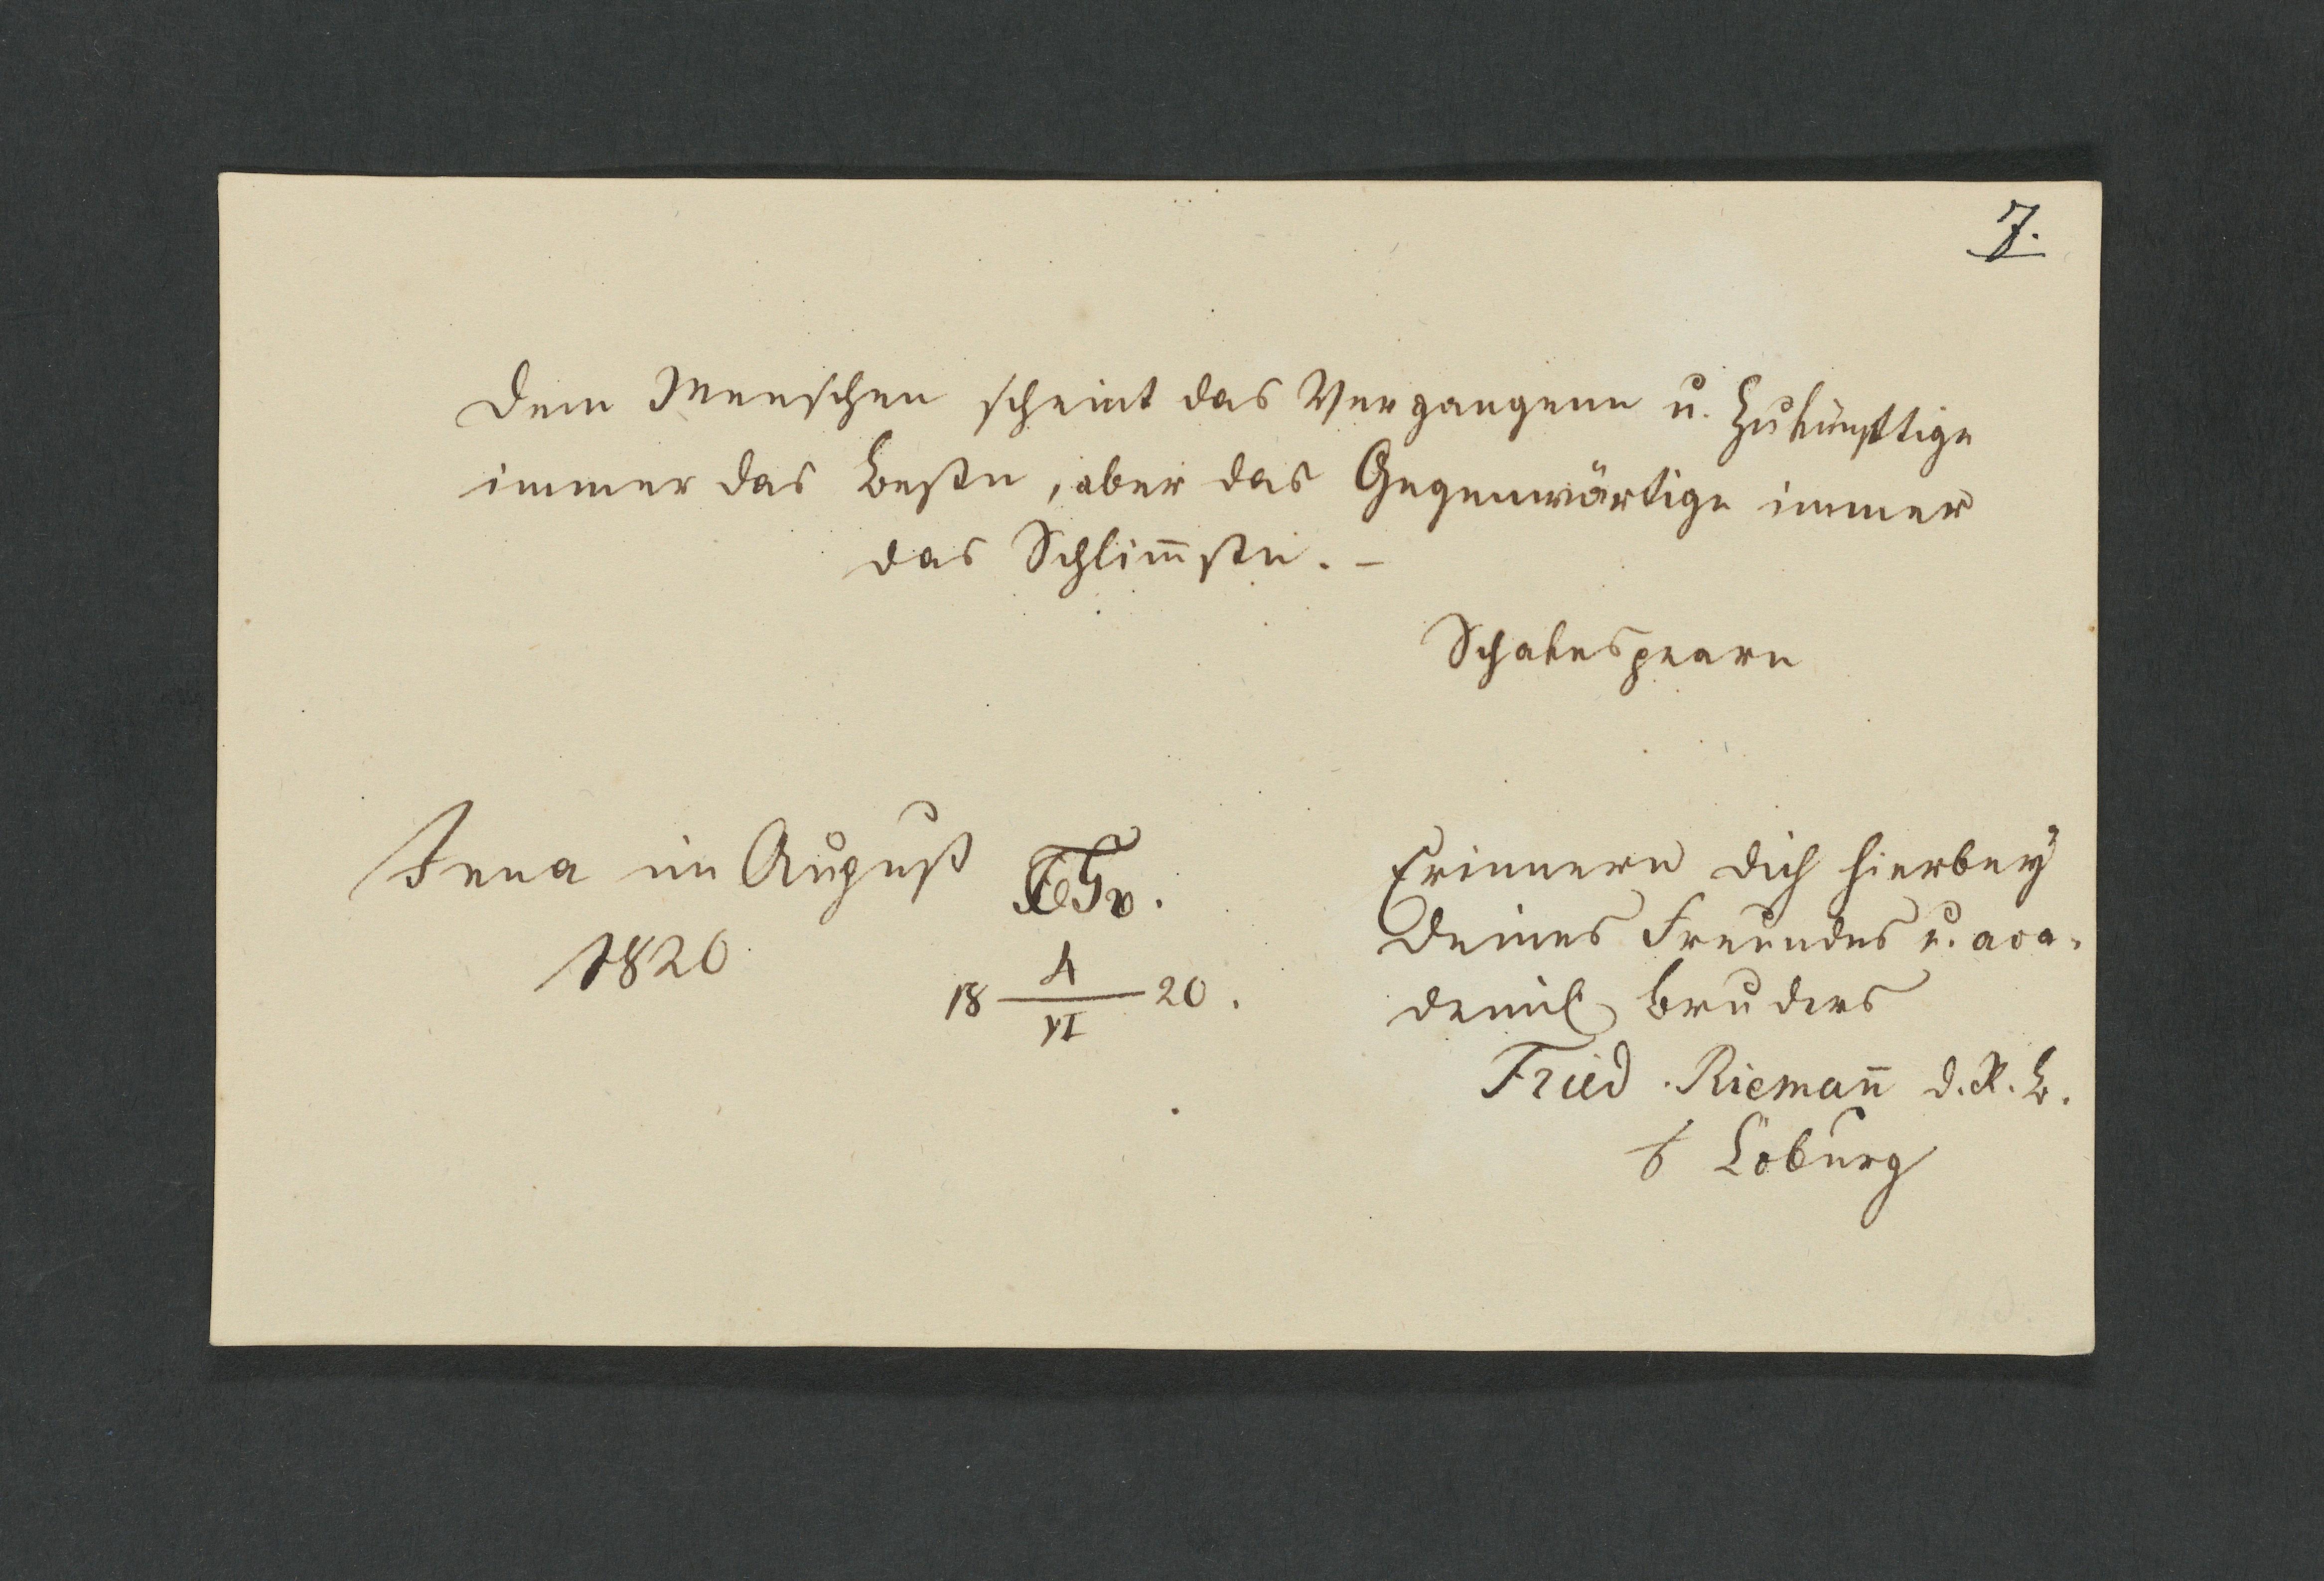 7.
Dem Menschen scheint das Vergangene u. Zukünftige
immer das Beste, aber das Gegenwärtige immer
das Schlim̄ste. –
Schakespeare
Jena im August
1820
18 4/VI 20.
Erinnere Dich hierbey
Deines Freundes u. aca-
demisch Bruders
Fried. Riemañ d. R. B.
Coburg